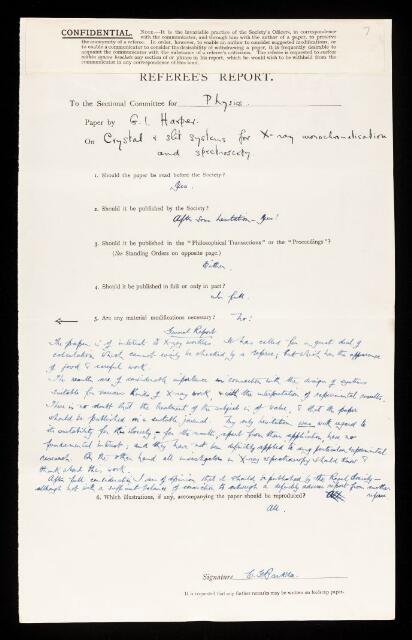 7
CONFIDENTIAL. NOTE.—It is the invariable practice of the Society's Officers, in correspondence
with the communicator, and through him with the author of a paper, to preserve
the anonymity of a referee. In order, however, to enable an author to consider suggested modifications, or
to enable a communicator to consider the desirability of withdrawing a paper, it is frequently desirable to
acquaint the communicator with the substance of a referee's criticisms. The referee is requested to enclose
within square brackets any section of or phrases in his report, which he would wish to be withheld from the
communicator in any correspondence of this kind.
REFEREE'S REPORT.
To the Sectional Committee for Physics
Paper by G. I. Harper.
On Crystal & slit systems for X-ray monochromatisation
and spectroscopy.
1. Should the paper be read before the Society?
Yes.
2. Should it be published by the Society?
After some hesitation – Yes!
3. Should it be published in the "Philosophical Transactions" or the "Proceedings"?
(See Standing Orders on opposite page.)
Either.
4. Should it be published in full or only in part?
In full.
5. Are any material modifications necessary? No!
General Report
The paper is of interest to X-ray workers. It has called for a great deal of
calculation which cannot easily be checked by a referee, but which has the appearance
of good & careful work.
The results are of considerable importance in connection with the design of systems
suitable for various kinds of X-ray work, & with the interpretation of experimental results.
There is no doubt that the treatment of the subject is of value, & that the paper
should be published in a suitable journal. My only hesitation was with regard to
its suitability for this Society – for the results, apart from their application, have no
fundamental interest, and they have not been definitely applied to any particular experimental
research. On the other hand all investigators in X-ray spectroscopy should know &
think about this work.
After full consideration I am of opinion that it should be published by the Royal Society –
although not with a sufficient balance of conviction to outweigh a definitely adverse report from another
referee
6. Which illustrations, if any, accompanying the paper should be reproduced?
All.
Signature C. G. Barkla.
It is requested that any further remarks may be written on foolscap paper.